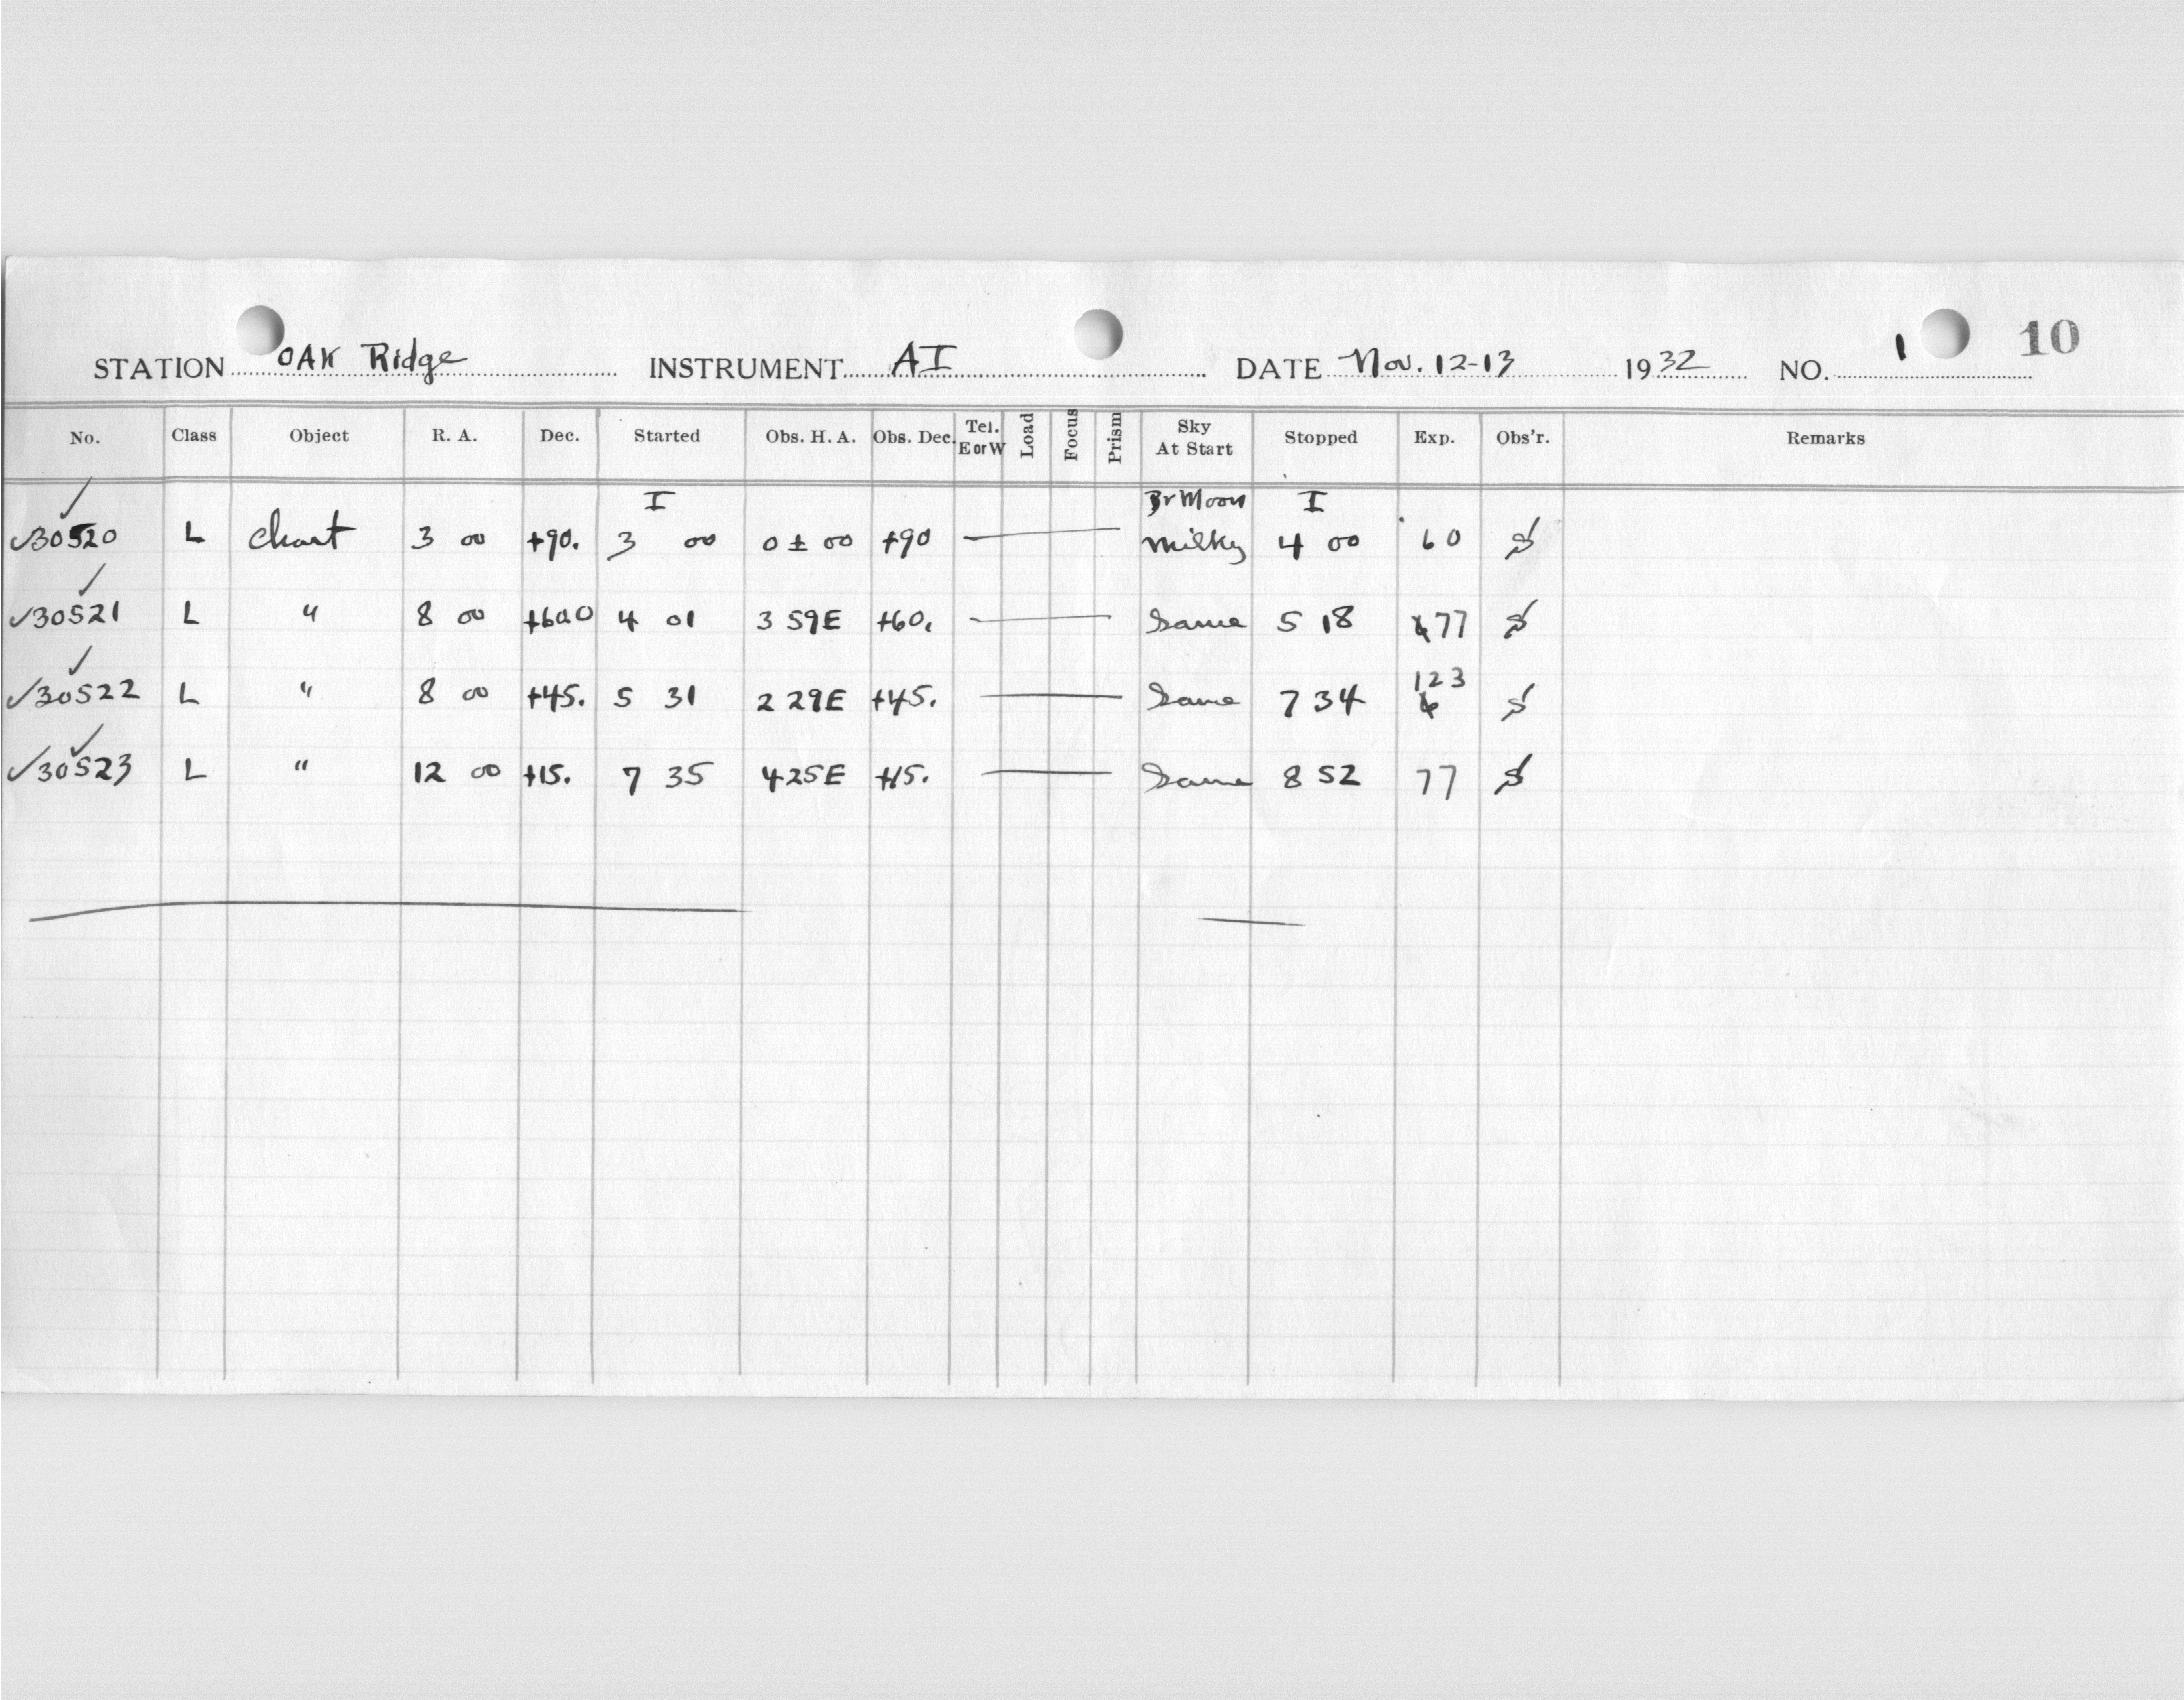 STATION OAK Ridge INSTRUMENT AI DATE Nov. 12-13 1932 NO. 1 10
No. Class Object R. A. Dec. Started Obs. H. A. Obs. Dec. Tel. E or W Load Focus Prism Sky At Start Stopped Exp. Obs'r. Remarks
I Br Moon I
✓30520 L Chart 3 00 +90. 3 00 0 ± 00 +90 — Milky 4 00 60
✓30521 L " 8 00 +60.0 4 01 3 59E +60. — Same 5 18 77
✓30522 L " 8 00 +45. 5 31 2 29E +45. — Same 7 34 123
✓30523 L " 12 00 +15. 7 35 4 25E +15. — Same 8 52 77